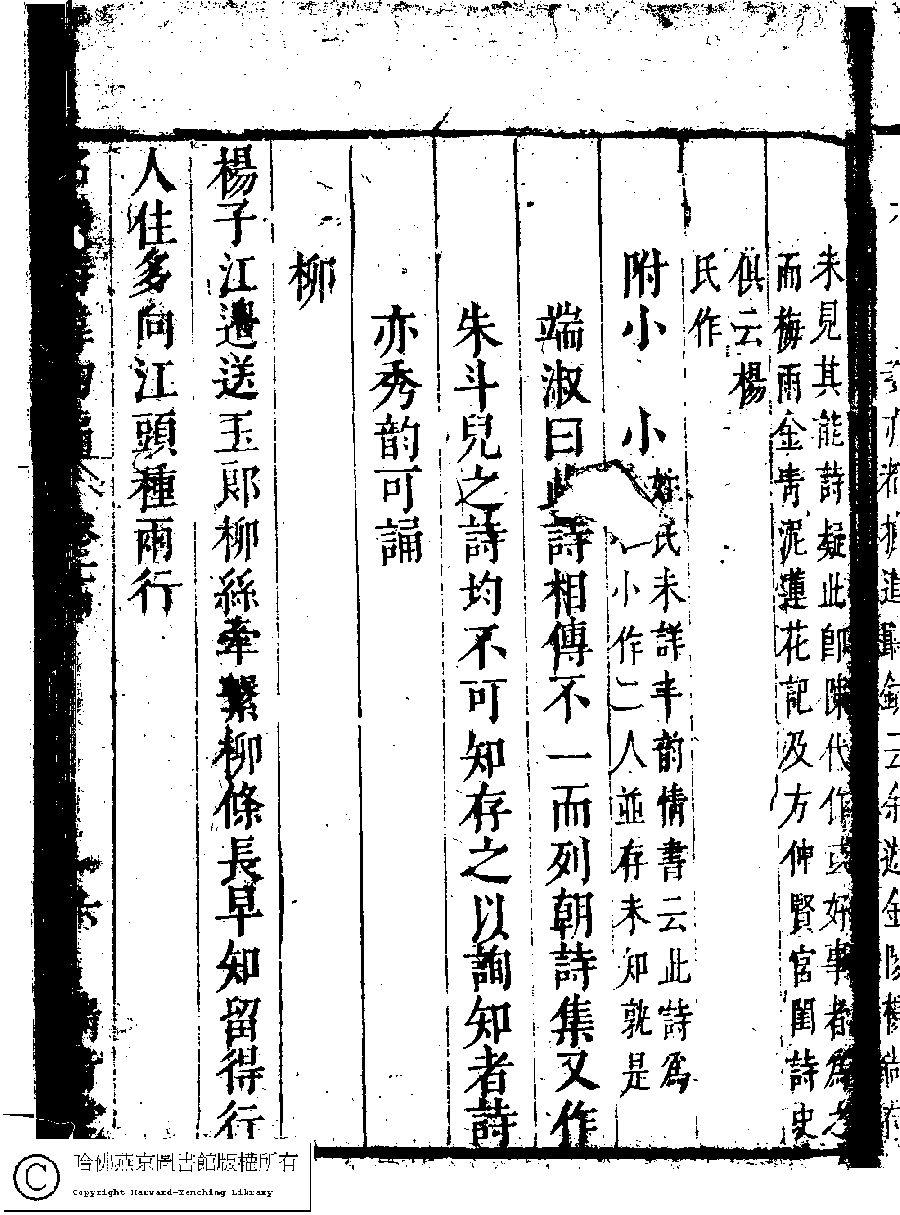 未見其能詩疑此即陳代作或好事者為之
而梅雨金青泥蓮花記及方仲賢宮閨詩史
俱云楊
氏作
附小 小
姓氏未詳丰韵情書云此詩為
小作二人並存未知孰是
端淑曰此詩相傳不一而列朝詩集又作
朱斗兒之詩均不可知存之以詢知者詩
亦秀韵可誦
柳
楊子江邊送玉郎柳絲牽繫柳條長早知留得行
人住多向江頭種兩行
哈佛燕京圖書館版權所有
Copyright Harvard-Yenching Library